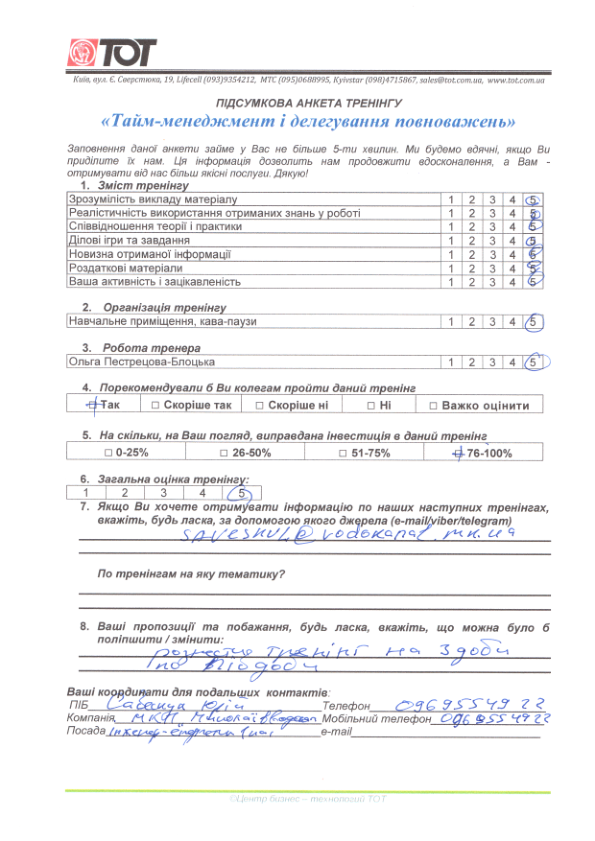 ТОТ
Київ, вул. Є. Сверстюка, 19, Lifecell (093)9354212, МТС (095)0688995, Kyivstar (098)4715867, sales@tot.com.ua, www.tot.com.ua
ПІДСУМКОВА АНКЕТА ТРЕНІНГУ
«Тайм-менеджмент і делегування повноважень»
Заповнення даної анкети займе у Вас не більше 5-ти хвилин. Ми будемо вдячні, якщо Ви
приділите їх нам. Ця інформація дозволить нам продовжити вдосконалення, а Вам -
отримувати від нас більш якісні послуги. Дякую!
1. Зміст тренінгу
Зрозумілість викладу матеріалу 1 2 3 4 5
Реалістичність використання отриманих знань у роботі 1 2 3 4 5
Співвідношення теорії і практики 1 2 3 4 5
Ділові ігри та завдання 1 2 3 4 5
Новизна отриманої інформації 1 2 3 4 5
Роздаткові матеріали 1 2 3 4 5
Ваша активність і зацікавленість 1 2 3 4 5
2. Організація тренінгу
Навчальне приміщення, кава-паузи 1 2 3 4 5
3. Робота тренера
Ольга Пестрецова-Блоцька 1 2 3 4 5
4. Порекомендували б Ви колегам пройти даний тренінг
□ Так □ Скоріше так □ Скоріше ні □ Ні □ Важко оцінити
5. На скільки, на Ваш погляд, виправдана інвестиція в даний тренінг
□ 0-25% □ 26-50% □ 51-75% □ 76-100%
6. Загальна оцінка тренінгу:
1 2 3 4 5
7. Якщо Ви хочете отримувати інформацію по наших наступних тренінгах,
вкажіть, будь ласка, за допомогою якого джерела (e-mail/viber/telegram)
@vodokanal.mk.ua
По тренінгам на яку тематику?
8. Ваші пропозиції та побажання, будь ласка, вкажіть, що можна було б
поліпшити / змінити:
рознести тренінг на 3 доби
по
Ваші координати для подальших контактів:
ПІБ Юрій Телефон 0969554922
Компанія МКП Мобільний телефон 0969554922
Посада e-mail
©Центр бізнес – технологій ТОТ